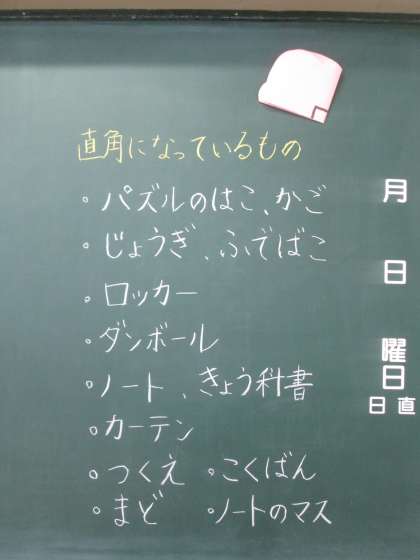 直角になっているもの
・パズルのはこ、かご
・じょうぎ、ふでばこ
・ロッカー
・ダンボール
・ノート、きょう科書
・カーテン
・つくえ ・こくばん
・まど ・ノートのマス
月
日
曜日
日直